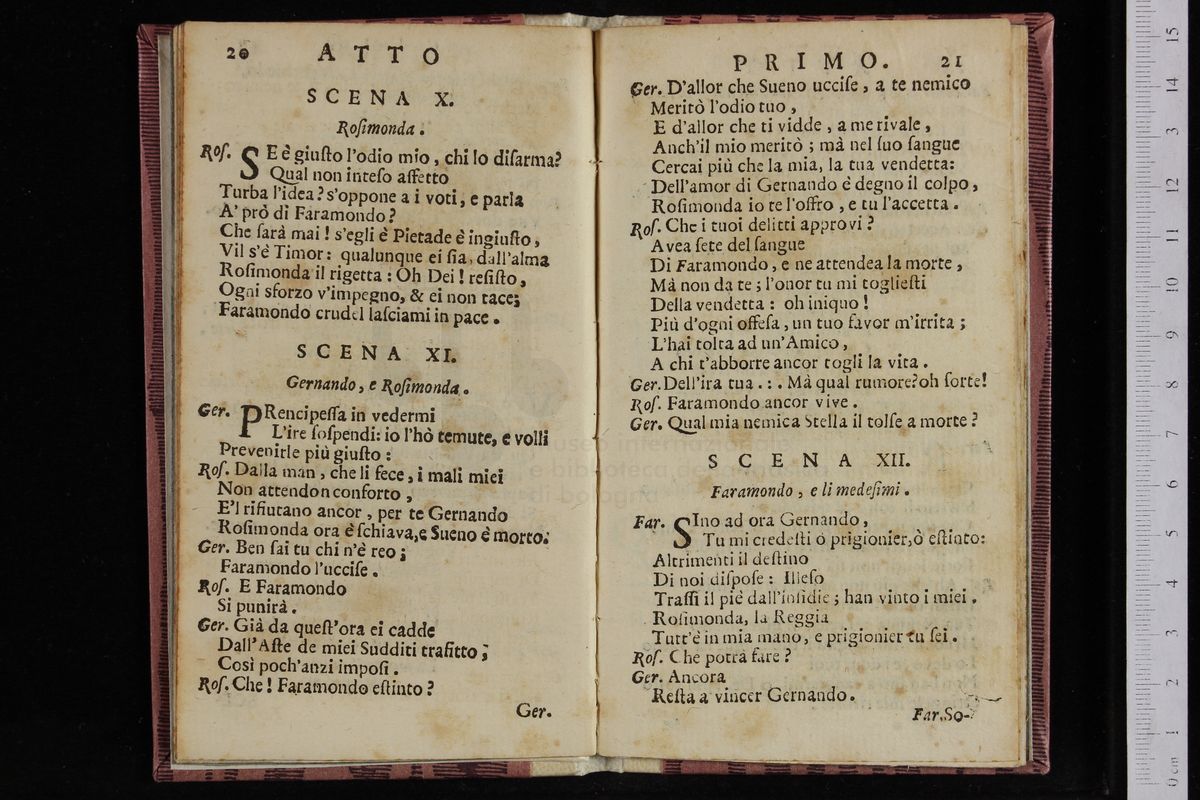 20 ATTO
SCENA X.
Roſimonda.
Roſ. SE è giuſto l'odio mio, chi lo diſarma?
Qual non inteſo affetto
Turba l'idea? s'oppone a i voti, e parla
A' prò di Faramondo?
Che ſarà mai! s'egli è Pietade è ingiuſto,
Vil s'è Timor: qualunque ei ſia, dall'alma
Roſimonda il rigetta: Oh Dei! reſiſto,
Ogni sforzo v'impegno, & ei non tace;
Faramondo crudel laſciami in pace.
SCENA XI.
Gernando, e Roſimonda.
Ger. PRencipeſſa in vedermi
L'ire ſoſpendi: io l'hò temute, e volli
Prevenirle più giuſto:
Roſ. Dalla man, che li fece, i mali miei
Non attendon conforto,
E'l rifiutano ancor, per te Gernando
Roſimonda ora è ſchiava, e Sueno è morto.
Ger. Ben ſai tu chi n'è reo;
Faramondo l'ucciſe.
Roſ. E Faramondo
Si punirà.
Ger. Già da queſt'ora ei cadde
Dall'Aſte de miei Sudditi trafitto;
Così poch'anzi impoſi.
Roſ. Che! Faramondo eſtinto?
Ger.
PRIMO. 21
Ger. D'allor che Sueno ucciſe, a te nemico
Meritò l'odio tuo,
E d'allor che ti vidde, a me rivale,
Anch'il mio meritò; mà nel ſuo ſangue
Cercai più che la mia, la tua vendetta:
Dell'amor di Gernando è degno il colpo,
Roſimonda io te l'offro, e tu l'accetta.
Roſ. Che i tuoi delitti approvi?
Avea ſete del ſangue
Di Faramondo, e ne attendea la morte,
Mà non da te; l'onor tu mi toglieſti
Della vendetta: oh iniquo!
Più d'ogni offeſa, un tuo favor m'irrita;
L'hai tolta ad un'Amico,
A chi t'abborre ancor togli la vita.
Ger. Dell'ira tua . : . Mà qual rumore? oh ſorte!
Roſ. Faramondo ancor vive.
Ger. Qual mia nemica Stella il tolſe a morte?
SCENA XII.
Faramondo, e li medeſimi.
Far. SIno ad ora Gernando,
Tu mi credeſti ò prigionier, ò eſtinto:
Altrimenti il deſtino
Di noi diſpoſe: Illeſo
Traſſi il piè dall'inſidie; han vinto i miei.
Roſimonda, la Reggia
Tutt'è in mia mano, e prigionier tu ſei.
Roſ. Che potrà fare?
Ger. Ancora
Reſta a vincer Gernando.
Far. So-